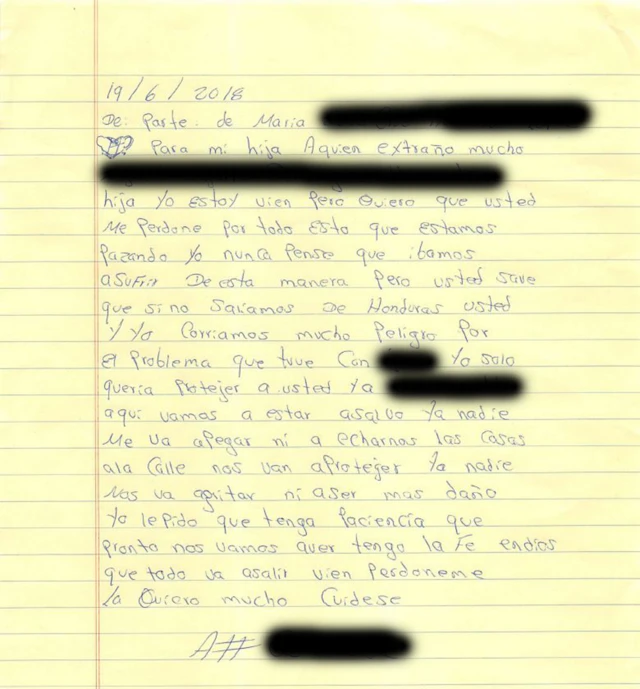 19/6/2018
De: Parte: de Maria
Para mi hija Aquien extraño mucho
hija Yo estoy vien Pero Quiero que usted
Me Perdone Por todo Esto que estamos
Pazando Yo nunca Pense que ibamos
asufrir De esta manera Pero usted save
que si no Saliamos De Honduras usted
Y Yo Corriamos mucho Peligro Por
el Problema que tuve Con Yo solo
queria Protejer a usted Ya
aqui vamos a estar asalvo Ya nadie
Me va apegar ni a echarnos las Cosas
ala Calle nos van aProtejer Ya nadie
Nos va agritar ni aser mas daño
Yo le Pido que tenga Paciencia que
Pronto nos vamos aver tengo la Fe endios
que todo va asalir vien Perdoneme
la Quiero mucho Cuidese